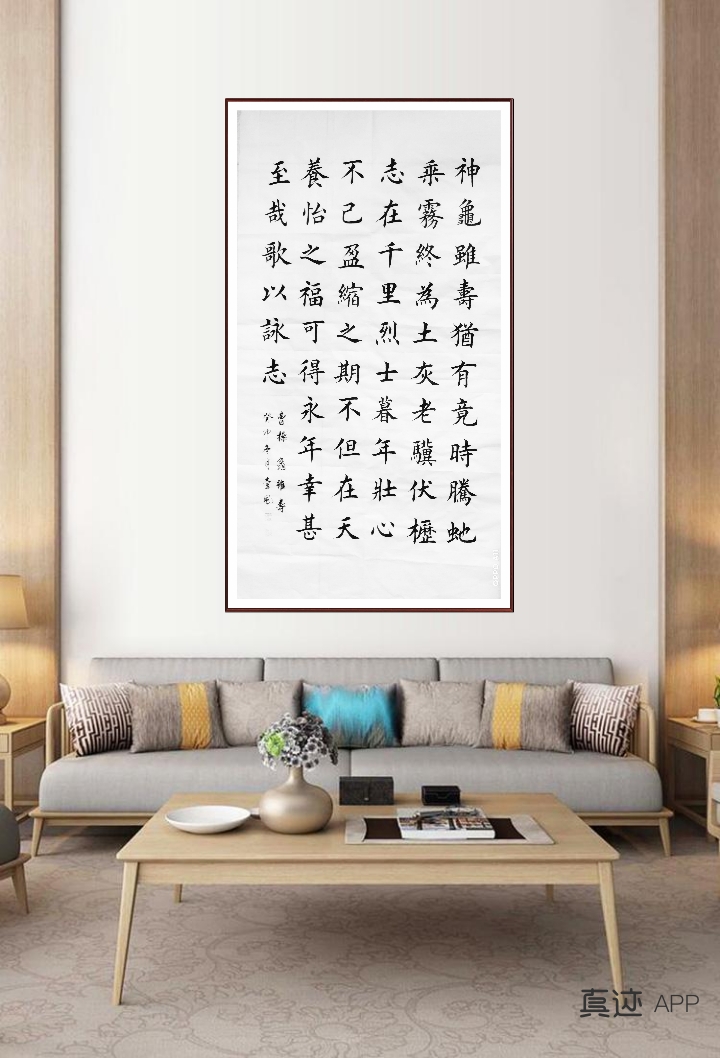 神龜雖壽猶有竟時騰虵
乗霧終為土灰老驥伏櫪
志在千里烈士暮年壯心
不已盈縮之期不但在天
養怡之福可得永年幸甚
至哉歌以詠志
曹操龜雖壽
真迹 APP